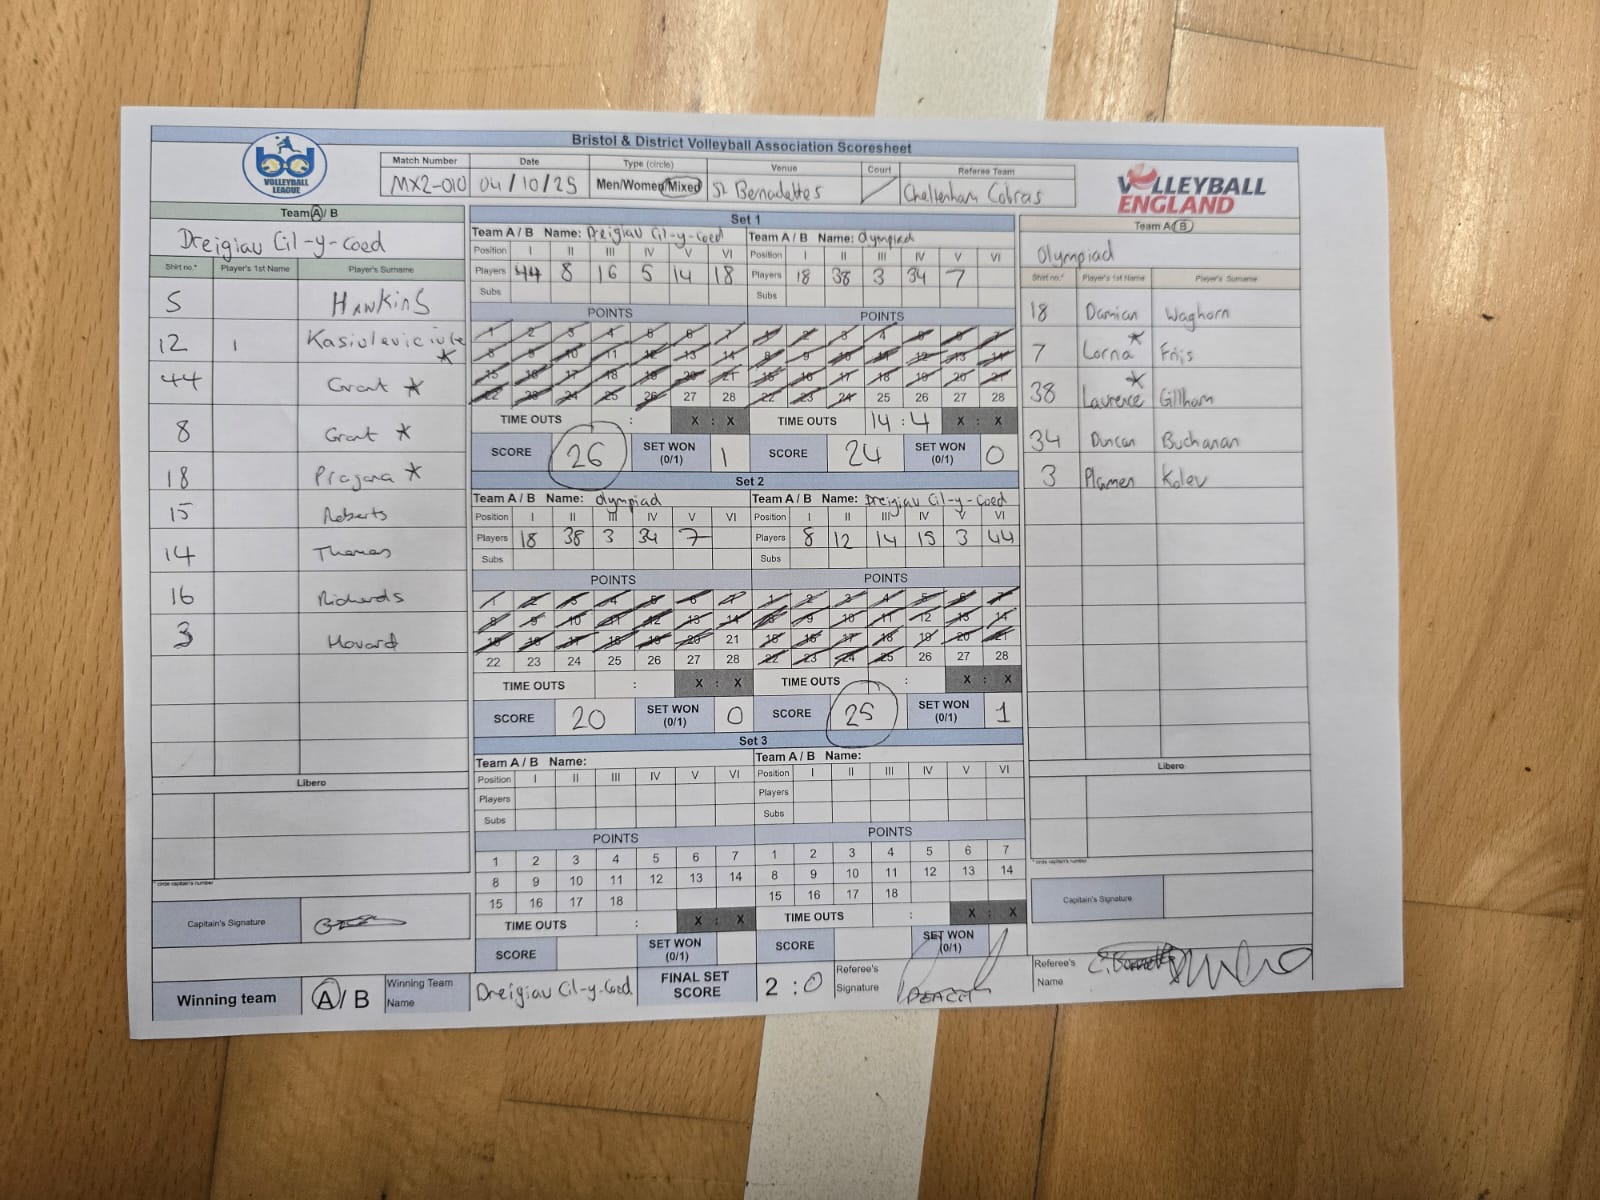 Bristol & District Volleyball Association Scoresheet
bd VOLLEYBALL LEAGUE
Match Number Date Type (circle) Venue Court Referee Team
MX2-010 04/10/25 Men/Women/Mixed St Bernadettes Cheltenham Cobras
VOLLEYBALL ENGLAND
Team A / B
Dreigiau Cil-y-Coed
Shirt no.* Player's 1st Name Player's Surname
5 Hawkins
12 Kasiuleviciute *
44 Grant *
8 Grant *
18 Prajana *
15 Roberts
14 Thomas
16 Richards
3 Howard
Libero
* circle captain's number
Capitain's Signature
Set 1
Team A / B Name: Dreigiau Cil-y-Coed Team A / B Name: Olympiad
Position I II III IV V VI Position I II III IV V VI
Players 44 8 16 5 14 18 Players 18 38 3 34 7
Subs Subs
POINTS POINTS
1 2 3 4 5 6 7 1 2 3 4 5 6 7
8 9 10 11 12 13 14 8 9 10 11 12 13 14
15 16 17 18 19 20 21 15 16 17 18 19 20 21
22 23 24 25 26 27 28 22 23 24 25 26 27 28
TIME OUTS : X : X TIME OUTS 14 : 4 X : X
SCORE 26 SET WON (0/1) 1 SCORE 24 SET WON (0/1) 0
Set 2
Team A / B Name: Olympiad Team A / B Name: Dreigiau Cil-y-Coed
Position I II III IV V VI Position I II III IV V VI
Players 18 38 3 34 7 Players 8 12 14 15 3 44
Subs Subs
POINTS POINTS
1 2 3 4 5 6 7 1 2 3 4 5 6 7
8 9 10 11 12 13 14 8 9 10 11 12 13 14
15 16 17 18 19 20 21 15 16 17 18 19 20 21
22 23 24 25 26 27 28 22 23 24 25 26 27 28
TIME OUTS : X : X TIME OUTS : X : X
SCORE 20 SET WON (0/1) 0 SCORE 25 SET WON (0/1) 1
Set 3
Team A / B Name: Team A / B Name:
Position I II III IV V VI Position I II III IV V VI
Players Players
Subs Subs
POINTS POINTS
1 2 3 4 5 6 7 1 2 3 4 5 6 7
8 9 10 11 12 13 14 8 9 10 11 12 13 14
15 16 17 18 15 16 17 18
TIME OUTS : X : X TIME OUTS : X : X
SCORE SET WON (0/1) SCORE SET WON (0/1)
Team A / B
Olympiad
Shirt no.* Player's 1st Name Player's Surname
18 Damian Waghorn
7 Lorna * Friis
38 Laurence * Gillham
34 Duncan Buchanan
3 Plamen Kolev
Libero
* circle captain's number
Capitain's Signature
Winning team A / B Winning Team Name Dreigiau Cil-y-Coed FINAL SET SCORE 2 : 0 Referee's Signature Referee's Name